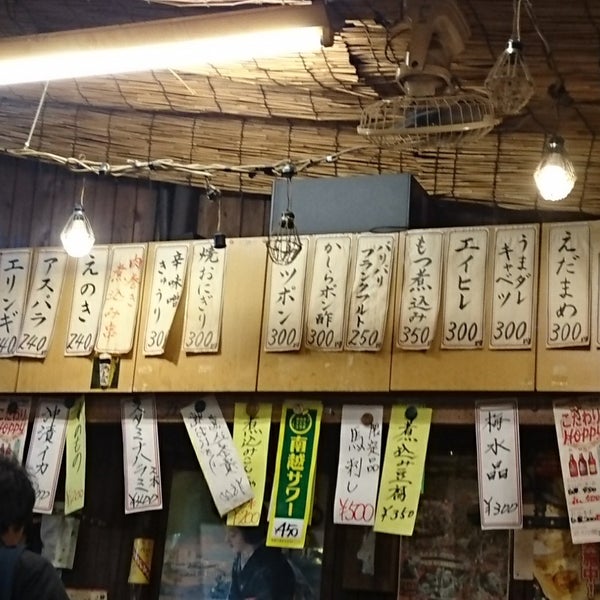 エリンギ
アスパラ
240
えのき
240
肉巻き
煮込み串
辛味噌
きゅうり
焼おにぎり
300
300
かしらポン酢
300
パリパリ
250
もつ煮込み
350
エイヒレ
300
うまダレ
キャベツ
300
えだまめ
300
こだわり
HOPPY
沖漬イカ
スタミナ
南越サワー
450
馬刺し
¥500
煮込み豆腐
¥350
梅水晶
¥300
こだわり
HOPPY